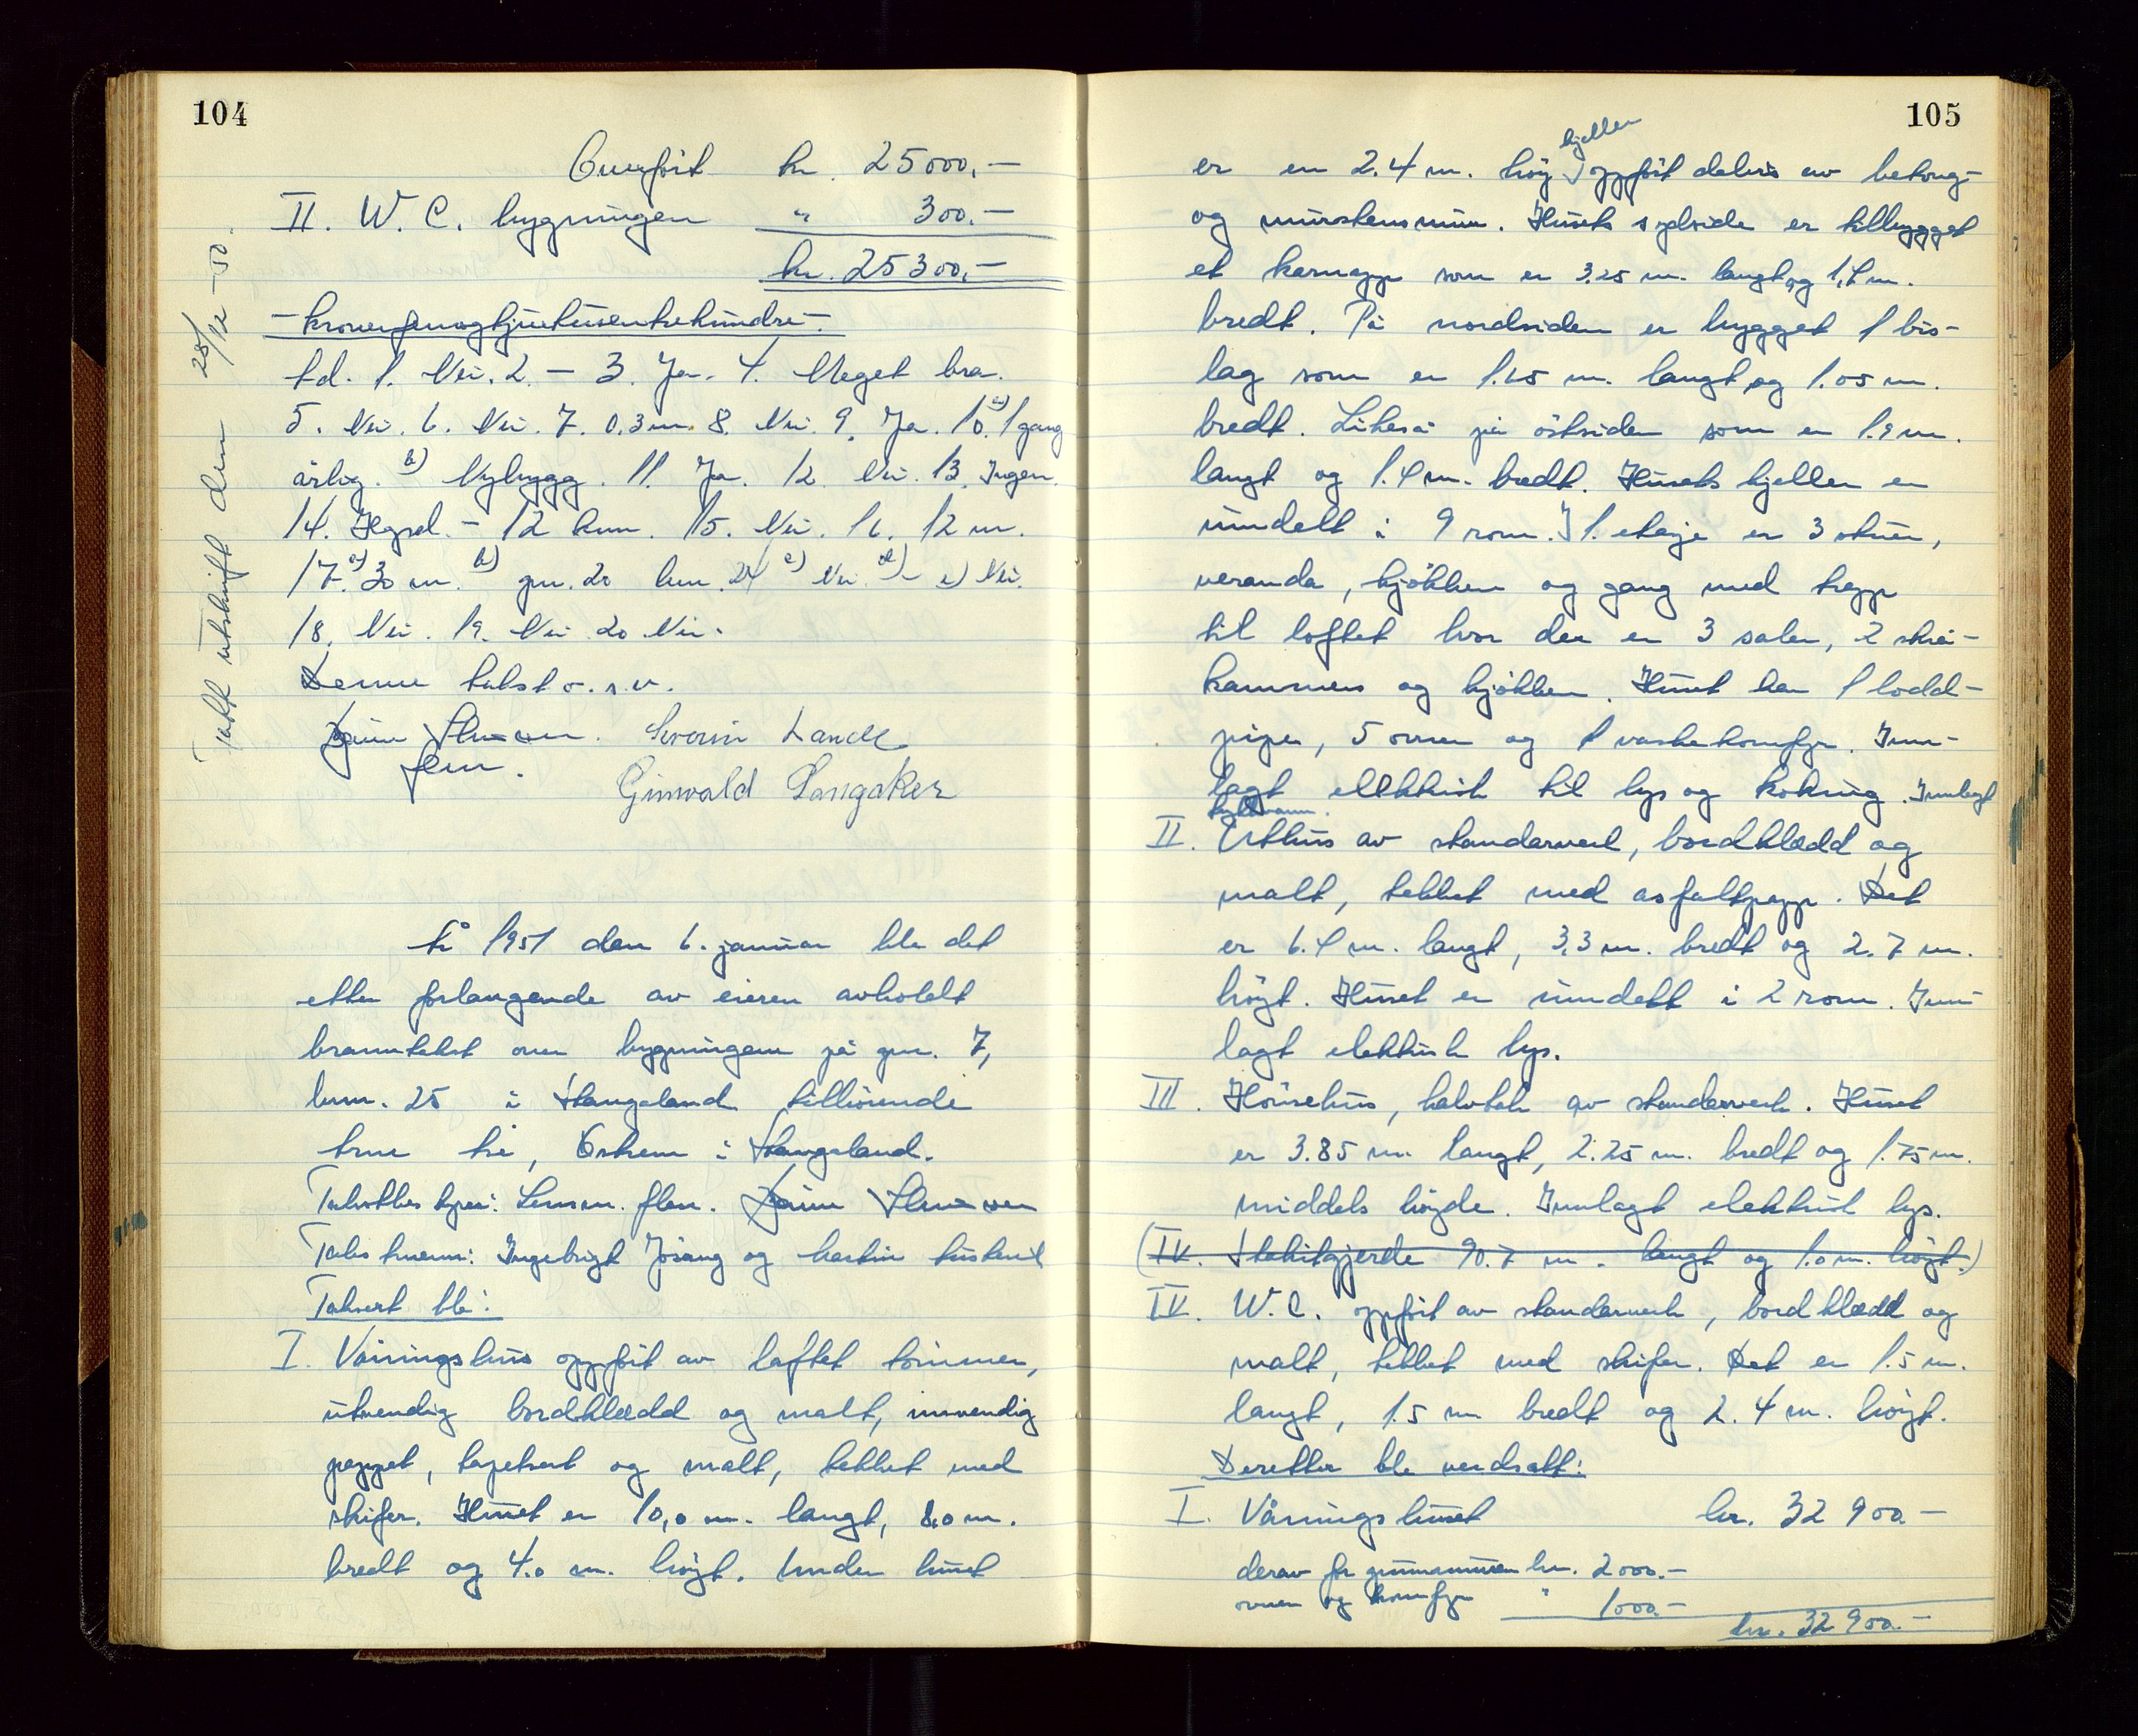 104
Overført kr. 25000.-
II. W. C. bygningen " 300.-
kr. 25300.-
-kronerfemogtjuetusentrehundre-
Fd. 1. Nei. 2. - 3. Ja. 4. Meget bra.
5. Nei. 6. Nei. 7. 0.3 m. 8. Nei. 9. Ja. 10. a) 1 gang
årlig. b) Nybygg. 11. Ja. 12. Nei. 13. Ingen.
14. Hgsd. - 12 km. 15. Nei. 16. 12 m.
17. a) 30 m. b) gnr. 20 bnr. 24 c) Nei d) - e) Nei.
18. Nei. 19. Nei 20 Nei.
Denne takst o.s.v.
Severin Lande
flm.
Gunvald Langaker
Tatt utskrift den 28/12-50.
År 1951 den 6. januar ble det
etter forlangende av eieren avholdt
branntakst over bygningene på gnr. 7,
bnr. 25 i Stangeland tilhørende
frue i Stangeland.
Takstbestyrer: Lensm. flm.
Takstmenn: Ingebrigt Jösang og
Taksert ble:
I. Våningshus oppført av laftet tømmer,
utvendig bordklædd og malt, innvendig
pappet, tapetsert og malt, tekket med
skifer. Huset er 10,0 m. langt, 8.0 m.
bredt og 4.0 m. høgt. Under huset
105
er en 2.4 m. høy kjeller oppført delvis av betong-
og murstensmur. Husets sydside er tilbygget
et karnapp som er 3.25 m. langt og 1,4 m.
bredt. På nordsiden er bygget 1 bis-
lag som er 1.65 m. langt og 1.05 m.
bredt. Likeså på östsiden som er 1.9 m.
langt og 1.4 m. bredt. Husets kjeller er
inndelt i 9 rom. I 1. etasje er 3 stuer,
veranda, kjökken og gang med trapp
til loftet hvor der er 3 saler, 2 skrå-
kammers og kjökken. Huset har 1 lodd-
pipe, 5 ovner og 1 vaskekomfyr. Inn-
lagt elektrisk til lys og koking. Innlagt
trykkvann.
II. Uthus av standerverk, bordklædd og
malt, tekket med asfaltpapp. Det
er 6.4 m. langt, 3,3 m. bredt og 2.7 m.
høgt. Huset er inndelt i 2 rom. Inn-
lagt elektrisk lys.
III. Hönsehus, halvtak av standerverk. Huset
er 3.85 m. langt, 2.25 m. bredt og 1.75 m.
middels høyde. Innlagt elektrisk lys.
(IV. Stakitgjerde 90.7 m. langt og 1.0 m. høgt.)
IV. W.C. oppført av standerverk, bordklædd og
malt, tekket med skifer. Det er 1.5 m.
langt, 1.5 m bredt og 2.4 m. høgt.
Deretter ble verdsatt:
I. Våningshuset kr. 32 900.-
derav for grunnmuren kr. 2000.-
ovner og komfyr " 1000.-
kr. 32 900.-